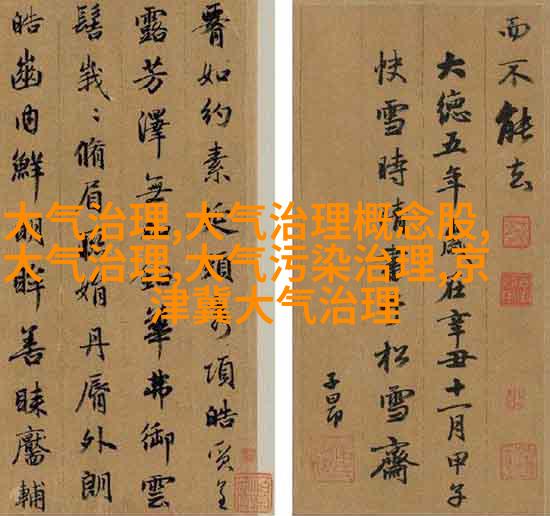 大气治理,大气治理概念股,
大气治理,大气污染治理,京
津冀大气治理
如約素延頸秀項皓質呈
露芳澤無加鉛華弗御雲
髻峩〻脩眉聯娟丹脣外朗
皓齒内鮮明眸善睞靨輔
而不能去
大德五年歲在辛丑十一月甲子
快雪時晴書于松雪齋
子昂